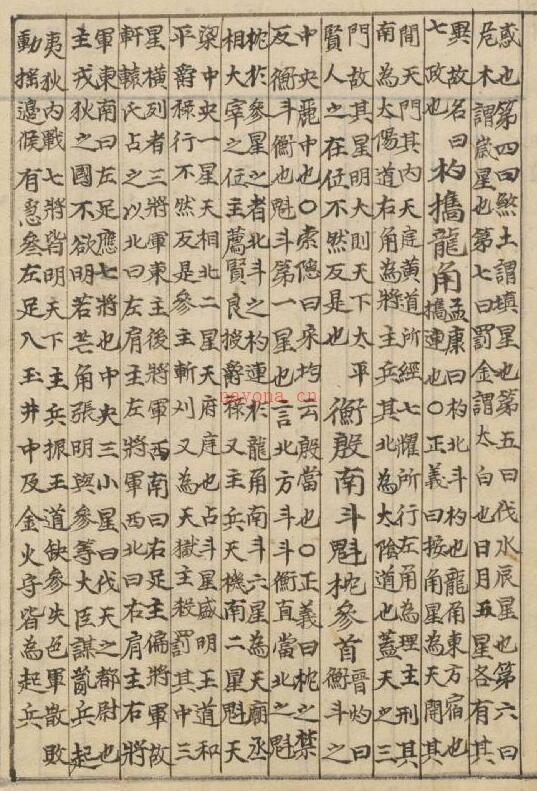 惑也第四曰煞土謂填星也第五曰伐水辰星也第六曰
危木謂歲星也第七曰罰金謂太白也日月五星各有其
異故名曰
七政也
杓攜龍角
孟康曰杓北斗杓也龍角東方宿也
攜連也〇正義曰按角星為天關其
間天門其內天庭黃道所經七耀所行左角為理主刑其
南為太陽道右角為將主兵其北為太陰道也蓋天之三
門故其星明大則天下太平
賢人之在位不然反是也
衡殷南斗魁枕參首
晉灼曰
衡斗之
中央麗中也〇索隱曰宋均云殷當也〇正義曰枕之禁
反衡斗衡也魁斗第一星也言北方斗斗衡直當北之魁
枕於參星之者北斗之杓連於龍角南斗六星為天廟丞
相大宰之位主薦賢良授爵祿又主兵天機南二星魁天
梁中央一星天相北二星天府庭也占斗星盛明王道和
平爵祿行不然反是參主斬刈又為天獄主殺罰其中三
星橫列者三將軍東主後將軍西南曰右足主偏將軍故
軒轅氏占之以北曰左肩主左將軍西北曰右肩主右將
軍東南曰左足應七將也中央三小星曰伐天之都尉也
主戎狄之國不欲明若芒角張明與參等大臣謀亂兵起
夷狄內戰七將皆明天下主兵振王道缺參失色軍散敗
動搖邊候有急參左足入玉井中及金火守皆為起兵
nayona.cn